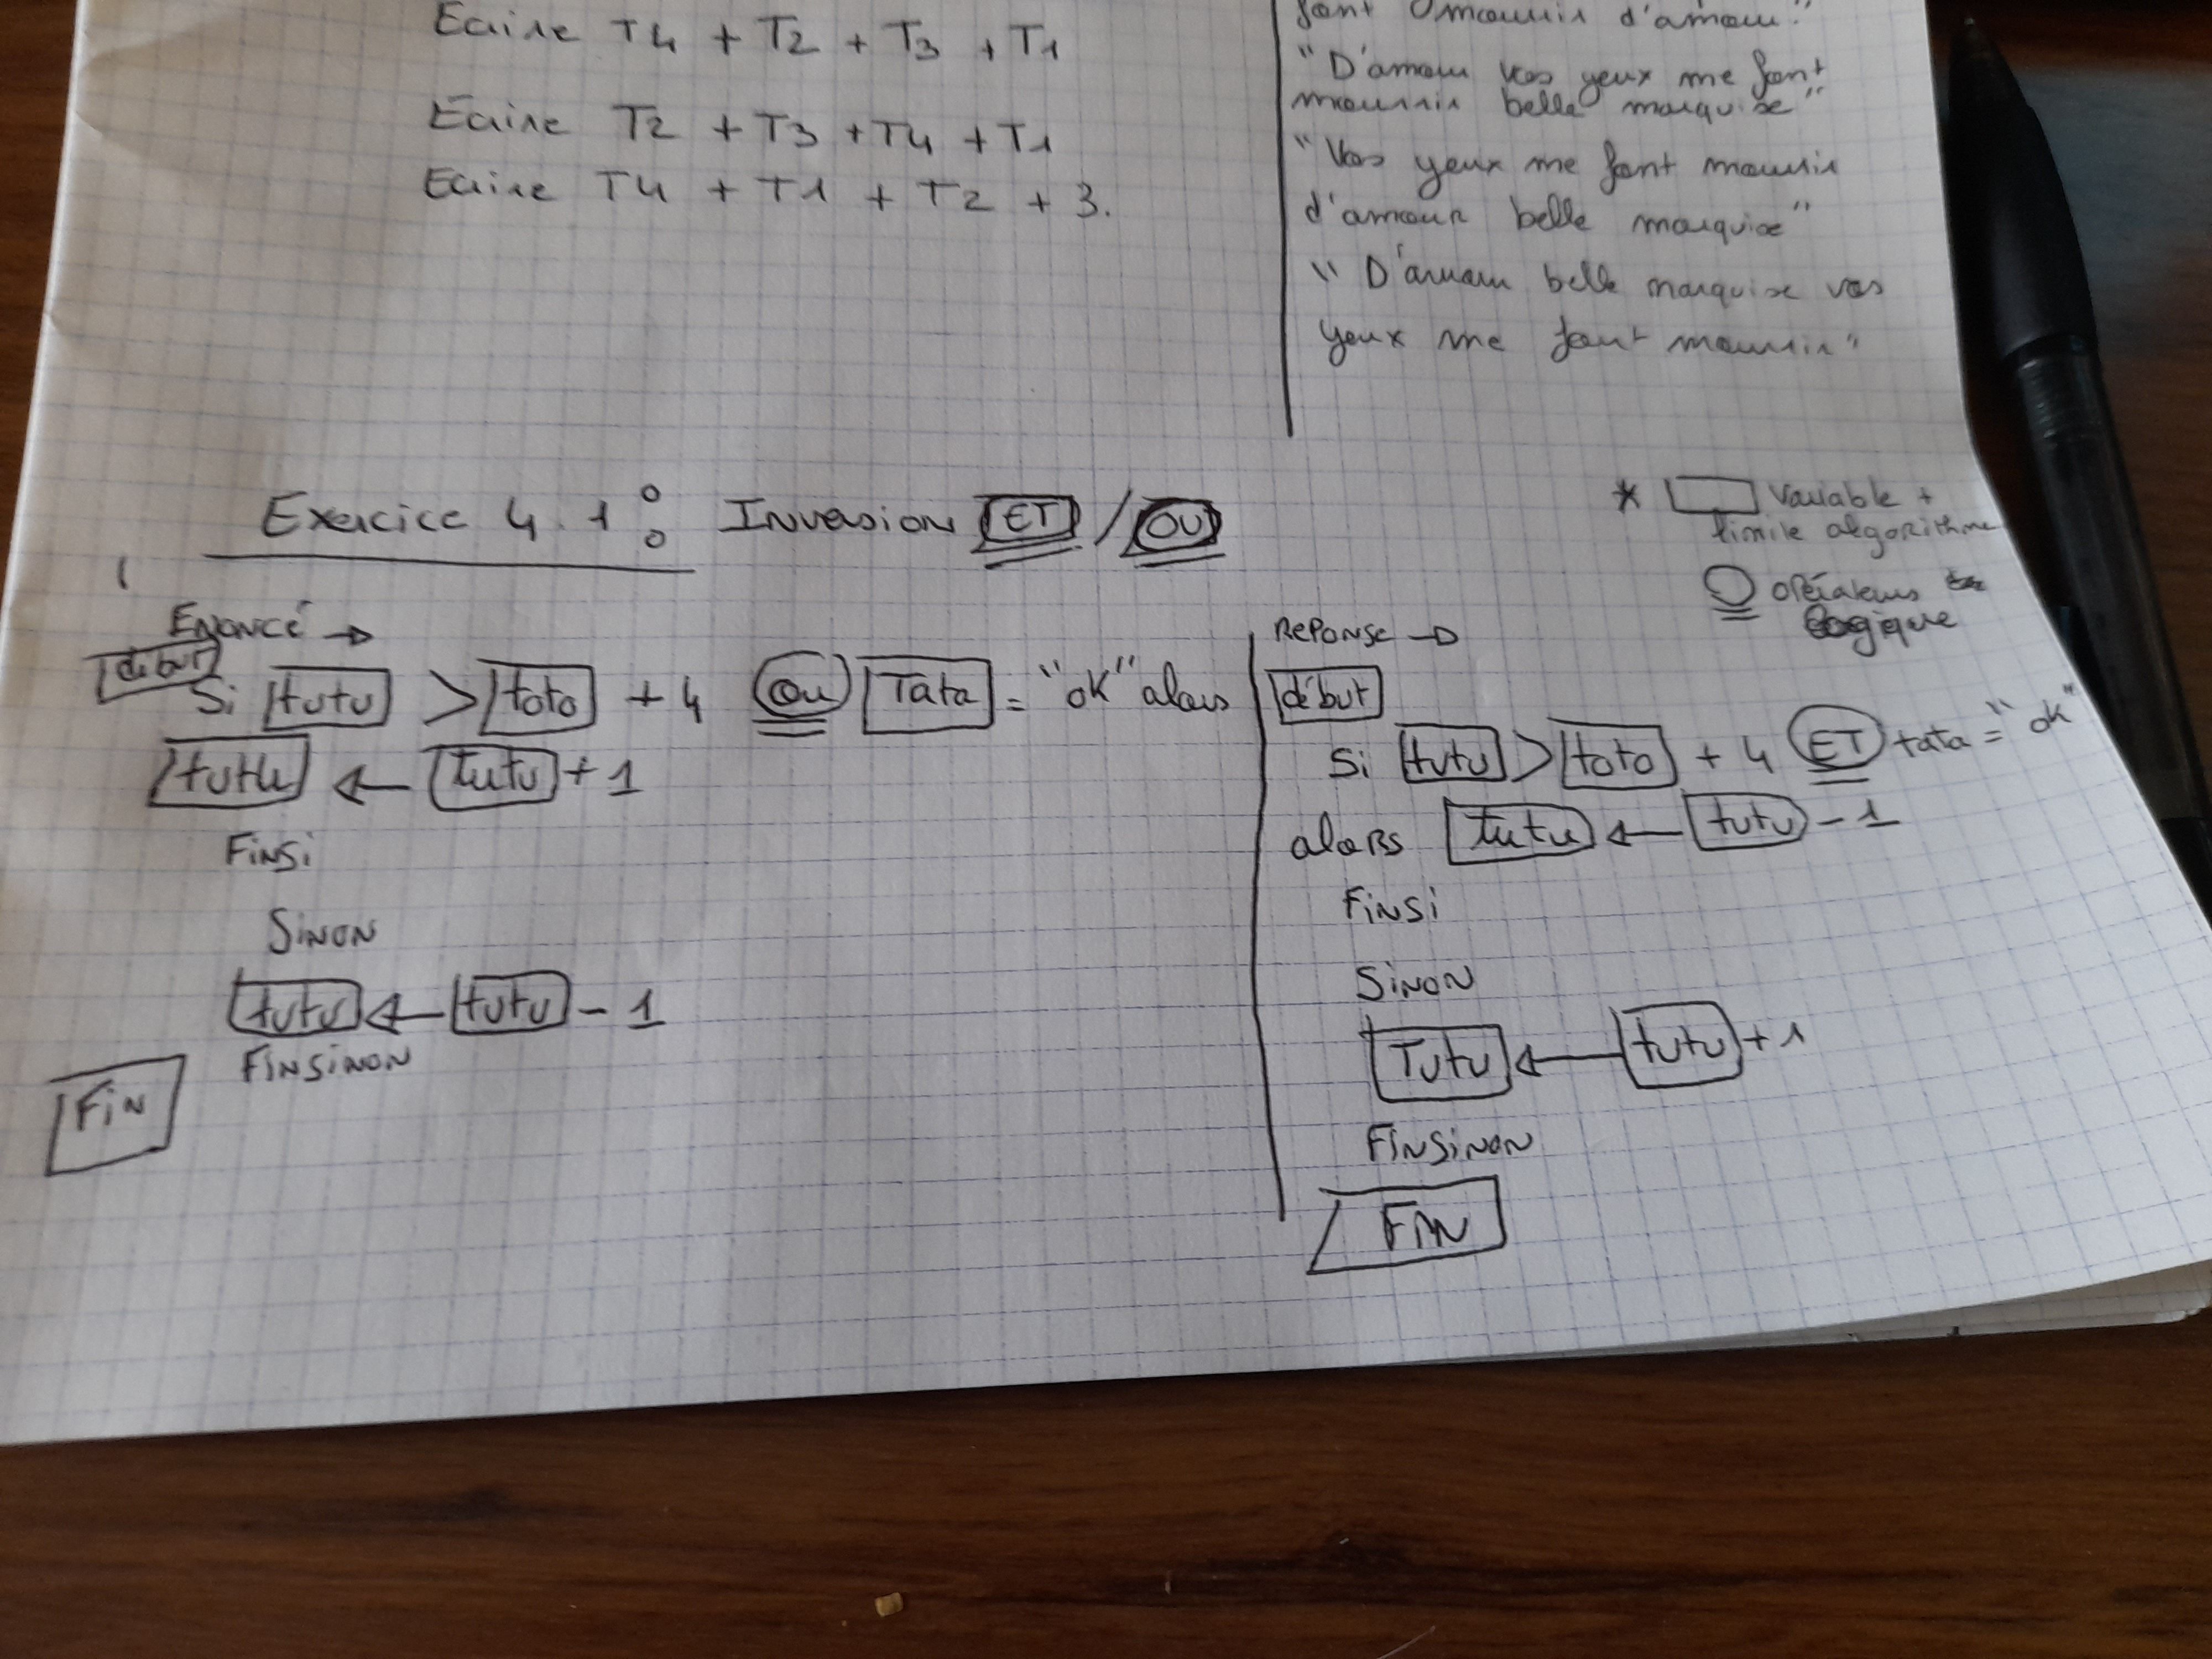 Ecrire T4 + T2 + T3 + T1
Ecrire T2 + T3 + T4 + T1
Ecrire T4 + T1 + T2 + 3.
font mourir d'amour."
"D'amour vos yeux me font
mourrir belle marquise"
"Vos yeux me font mourrir
d'amour belle marquise"
"D'amour belle marquise vos
yeux me font mourrir"
Exercice 4.1 : Inversion ET / OU
* Variable +
limite algorithme
opérateurs
logique
Enoncé →
début
Si tutu > toto + 4 Ou Tata = "ok" alors
tutu ← tutu + 1
Finsi
Sinon
tutu ← tutu - 1
Finsinon
Fin
Reponse →
début
Si tutu > toto + 4 ET tata = "ok"
alors tutu ← tutu - 1
Finsi
Sinon
Tutu ← tutu + 1
Finsinon
Fin